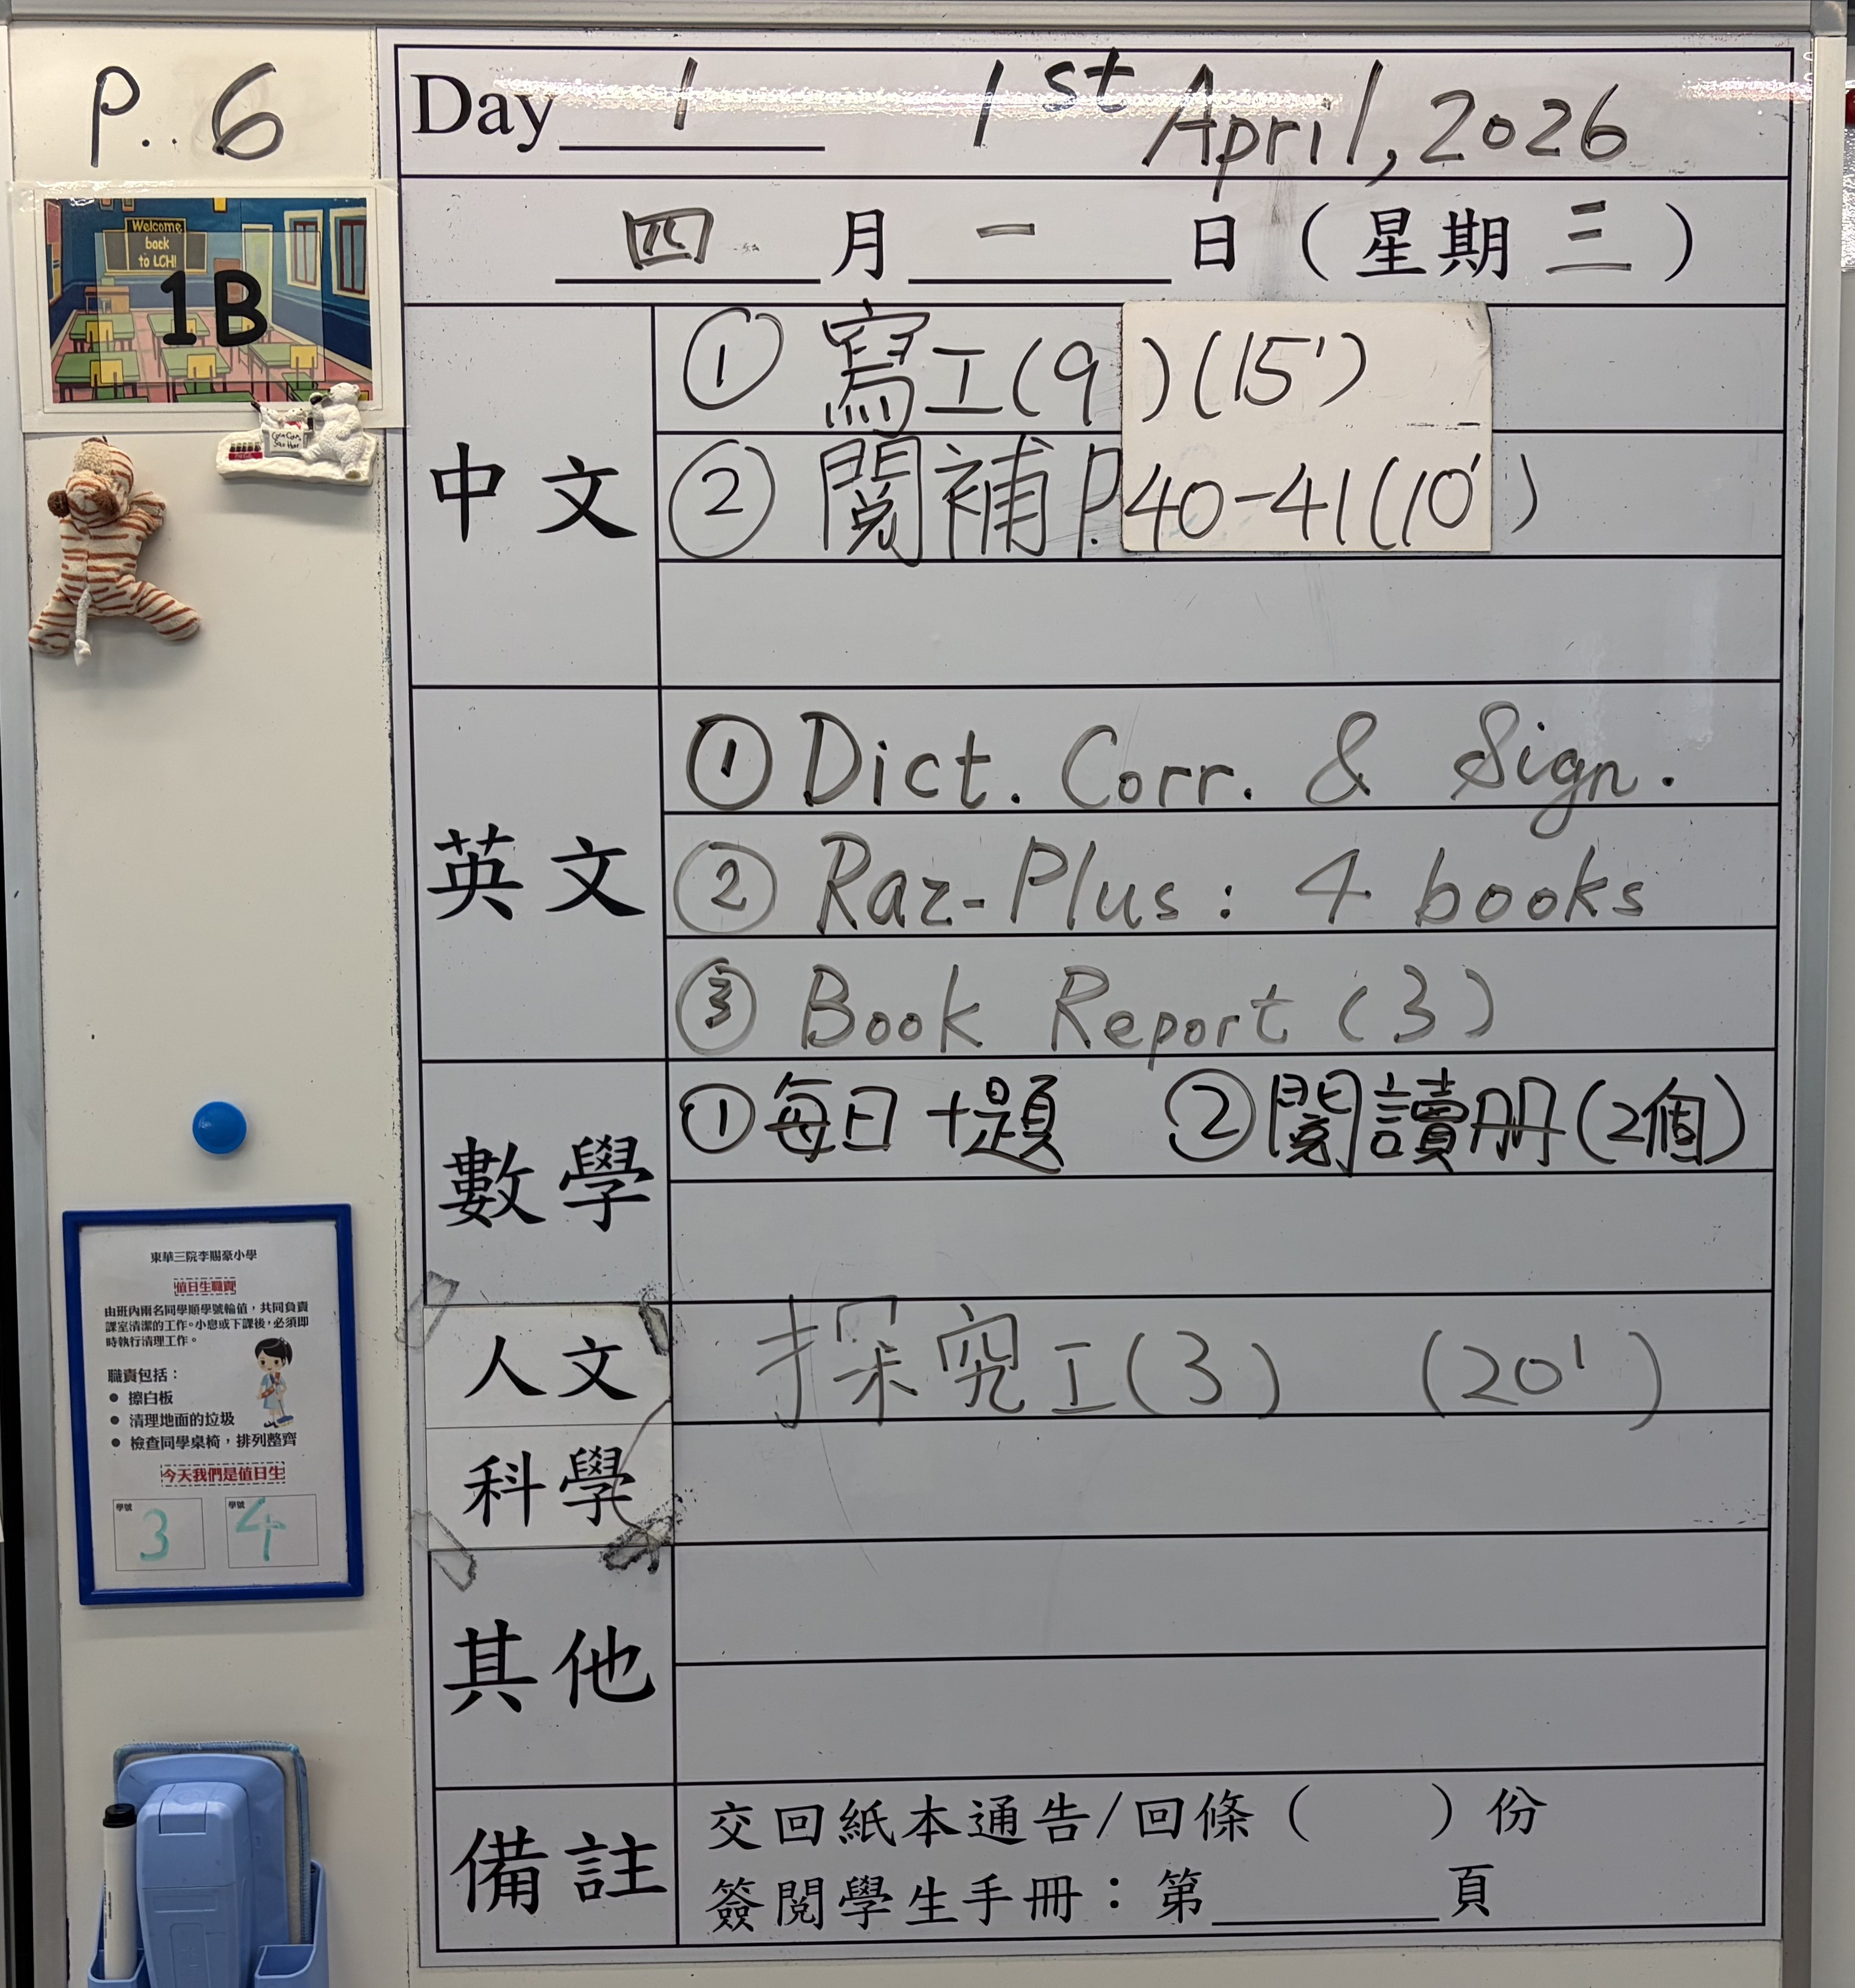 P. 6
Day 1 1st April, 2026
四 月 一 日 ( 星期 三 )
Welcome
back
to LCH!
1B
中文
① 寫工(9)(15')
② 閱補 P.40-41(10')
英文
① Dict. Corr. & Sign.
② Raz-Plus : 4 books
③ Book Report (3)
數學
① 每日十題 ② 閱讀册(2個)
人文
探究工(3) (20')
科學
其他
備註
交回紙本通告/回條( )份
簽閱學生手冊：第______頁
東華三院李賜豪小學
值日生職責
由班內兩名同學順學號輪值，共同負責
課室清潔的工作。小息或下課後，必須即
時執行清理工作。
職責包括：
● 擦白板
● 清理地面的垃圾
● 檢查同學桌椅，排列整齊
今天我們是值日生
學號 3 學號 4